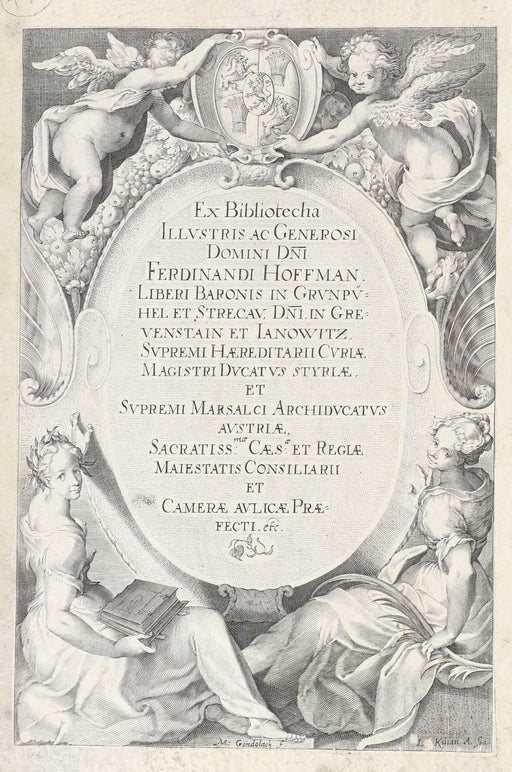 Ex Bibliotecha
Illvstris ac Generosi
Domini Dn̄i
Ferdinandi Hoffman.
Liberi Baronis in Grvnpv̈=
hel et Strecav. Dn̄i. in Gre=
venstain et Ianowitz,
Svpremi Hæreditarii Cvriæ
Magistri Dvcatvs Styriæ.
et
Svpremi Marsalci Archidvcatvs
avstriæ,
Sacratiss:mæ Cæs:æ et Regiæ
Maiestatis Consiliarii
et
Cameræ avlicæ Præ=
fecti. etc.
M: Gondolach F.
Kilian A.